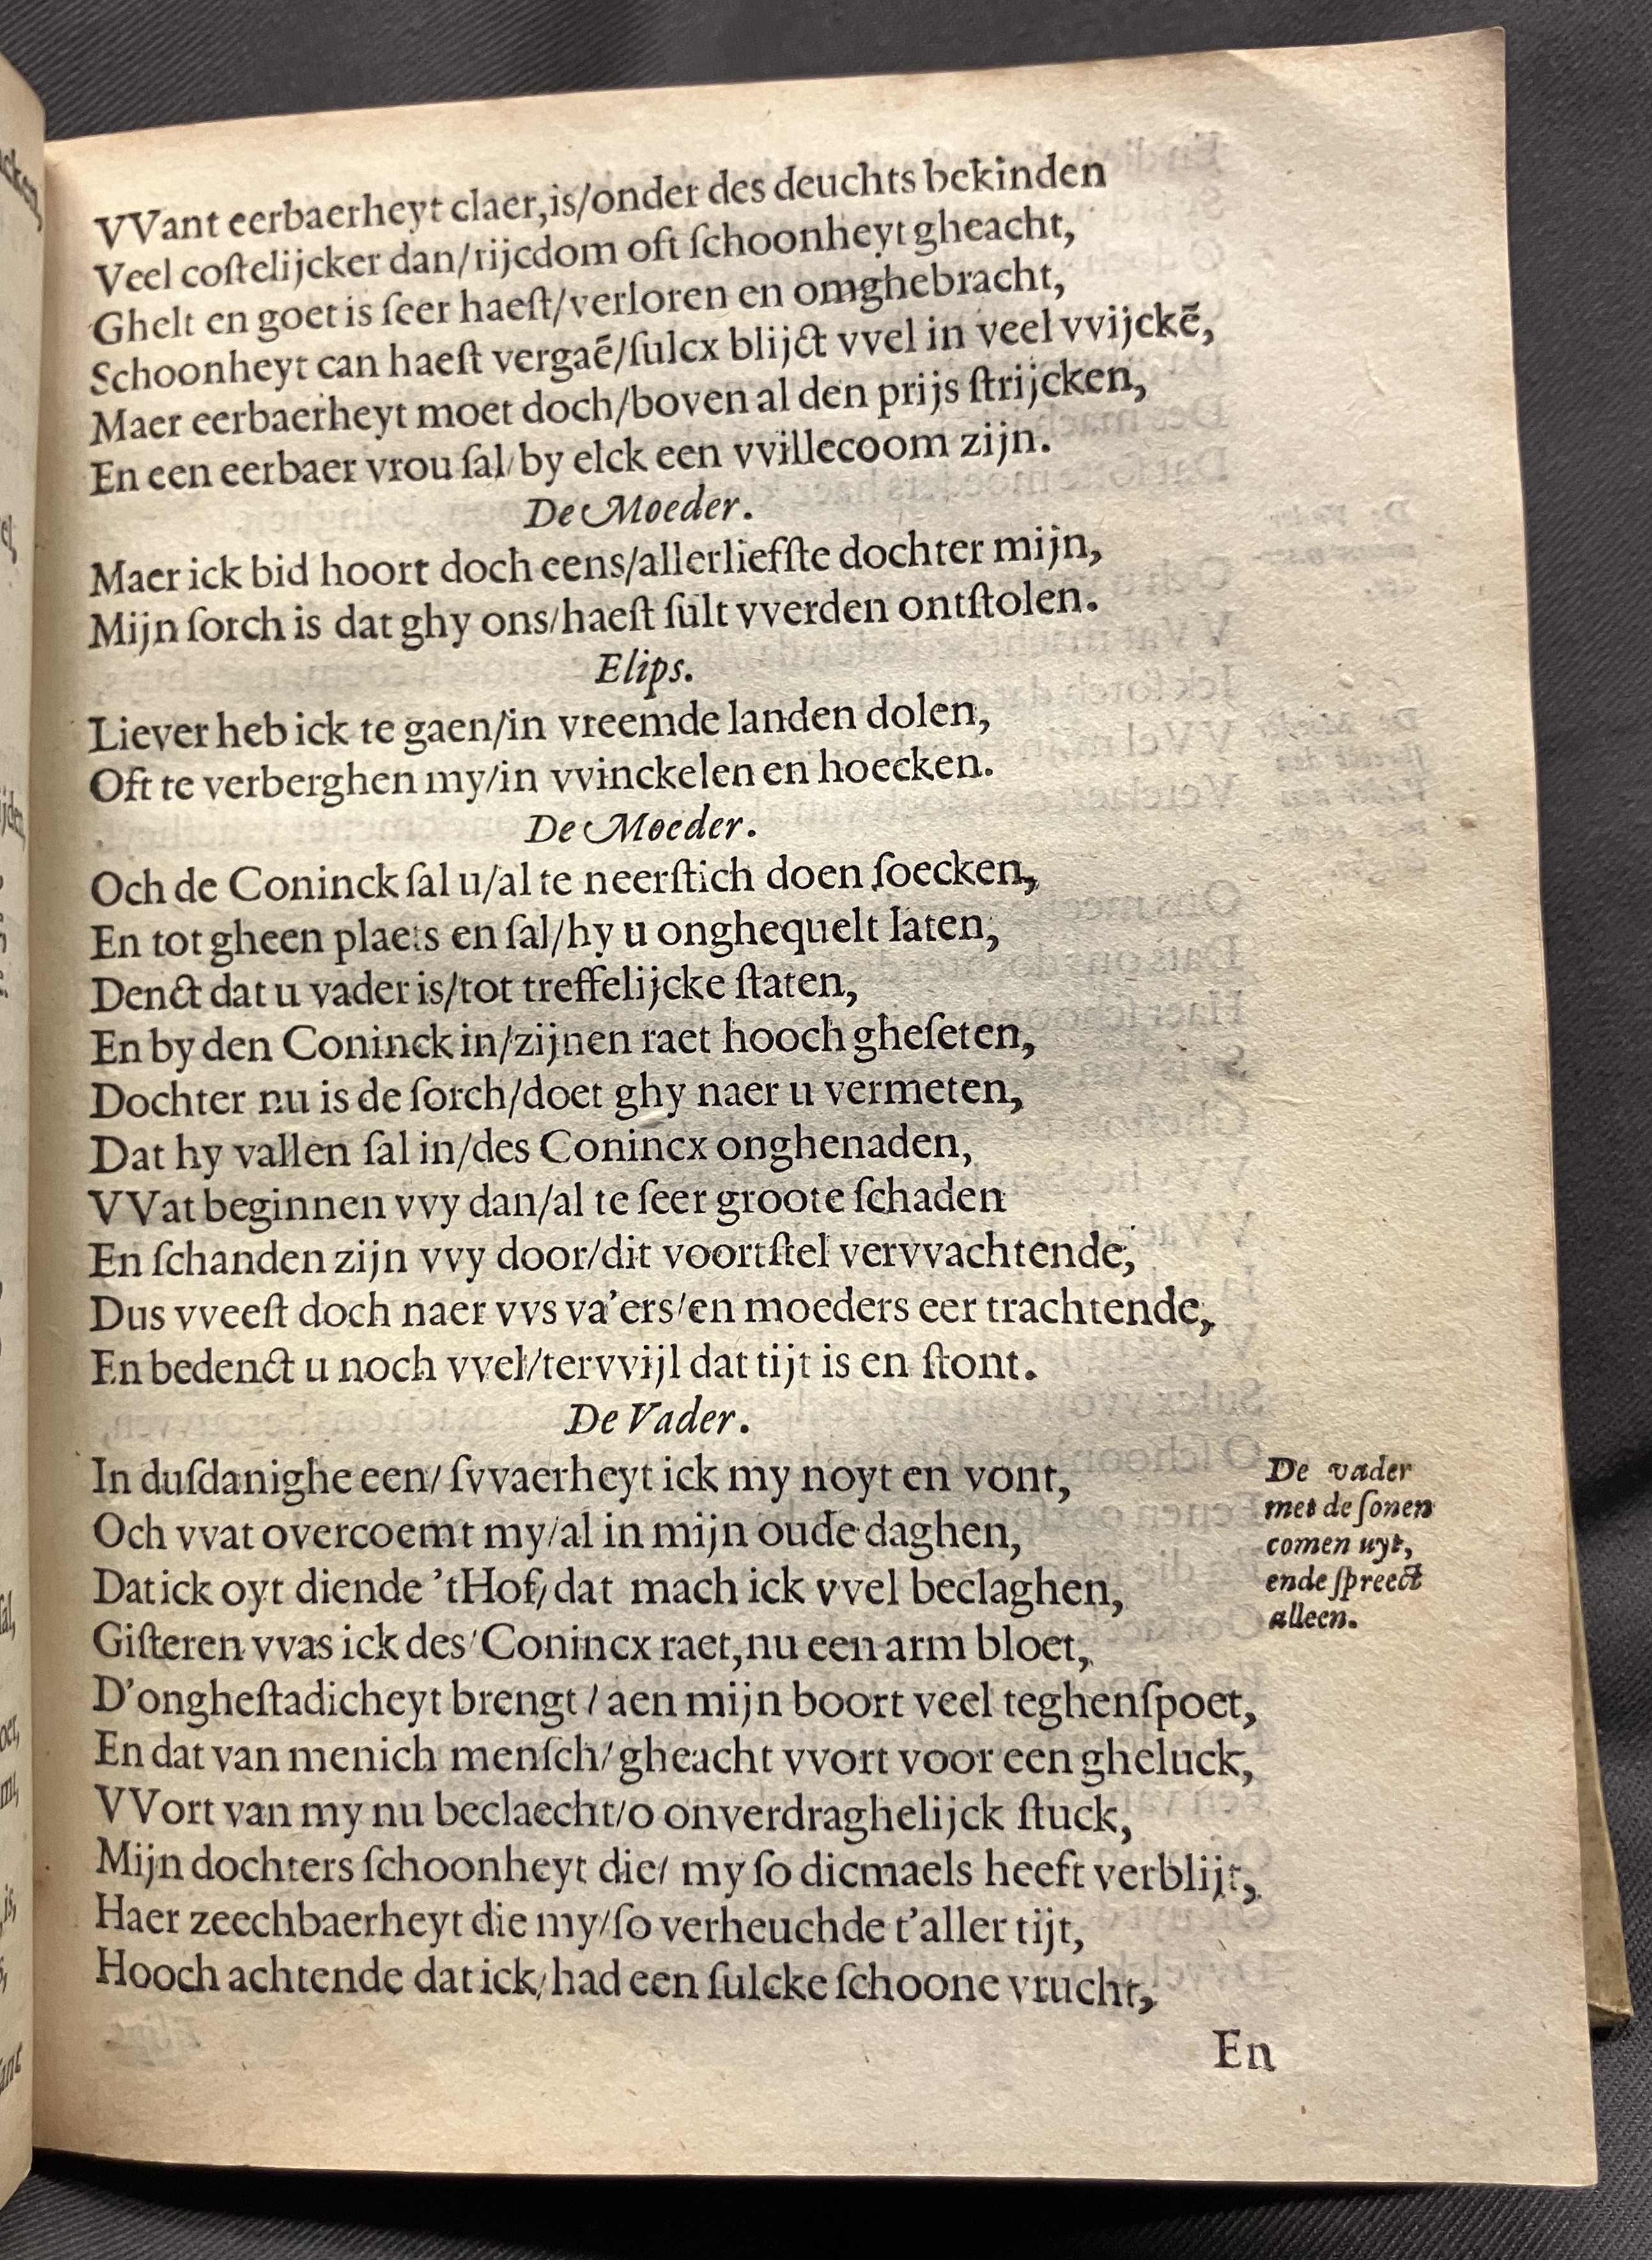 VVant eerbaerheyt claer,is/onder des deuchts bekinden
Veel coſtelijcker dan/rijcdom oft ſchoonheyt gheacht,
Ghelt en goet is ſeer haeſt/verloren en omghebracht,
Schoonheyt can haeſt vergaē/ſulcx blijct vvel in veel vvijckē,
Maer eerbaerheyt moet doch/boven al den prijs ſtrijcken,
En een eerbaer vrou ſal/by elck een vvillecoom zijn.
De Moeder.
Maer ick bid hoort doch eens/allerliefſte dochter mijn,
Mijn ſorch is dat ghy ons/haeſt ſult vverden ontſtolen.
Elips.
Liever heb ick te gaen/in vreemde landen dolen,
Oft te verberghen my/in vvinckelen en hoecken.
De Moeder.
Och de Coninck ſal u/al te neerſtich doen ſoecken,
En tot gheen plaets en ſal/hy u onghequelt laten,
Denct dat u vader is/tot treffelijcke ſtaten,
En by den Coninck in/zijnen raet hooch gheſeten,
Dochter nu is de ſorch/doet ghy naer u vermeten,
Dat hy vallen ſal in/des Conincx onghenaden,
VVat beginnen vvy dan/al te ſeer groote ſchaden
En ſchanden zijn vvy door/dit voortſtel vervvachtende,
Dus vveeſt doch naer vvs va'ers/en moeders eer trachtende,
En bedenct u noch vvel/tervvijl dat tijt is en ſtont.
De Vader.
In duſdanighe een/ ſvvaerheyt ick my noyt en vont,
Och vvat overcoemt my/al in mijn oude daghen,
Dat ick oyt diende 'tHof/dat mach ick vvel beclaghen,
Giſteren vvas ick des/Conincx raet,nu een arm bloet,
D'ongheſtadicheyt brengt / aen mijn boort veel teghenſpoet,
En dat van menich menſch/gheacht vvort voor een gheluck,
VVort van my nu beclaecht/o onverdraghelijck ſtuck,
Mijn dochters ſchoonheyt die/ my ſo dicmaels heeft verblijt,
Haer zeechbaerheyt die my/ſo verheuchde t'aller tijt,
Hooch achtende dat ick/had een ſulcke ſchoone vrucht,
De vader
met de ſonen
comen uyt,
ende ſpreect
alleen.
En